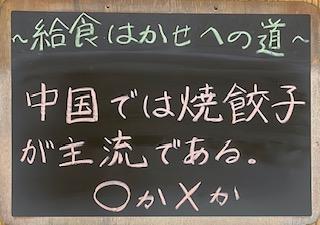 ~給食はかせへの道~
中国では焼餃子
が主流である。
○か×か